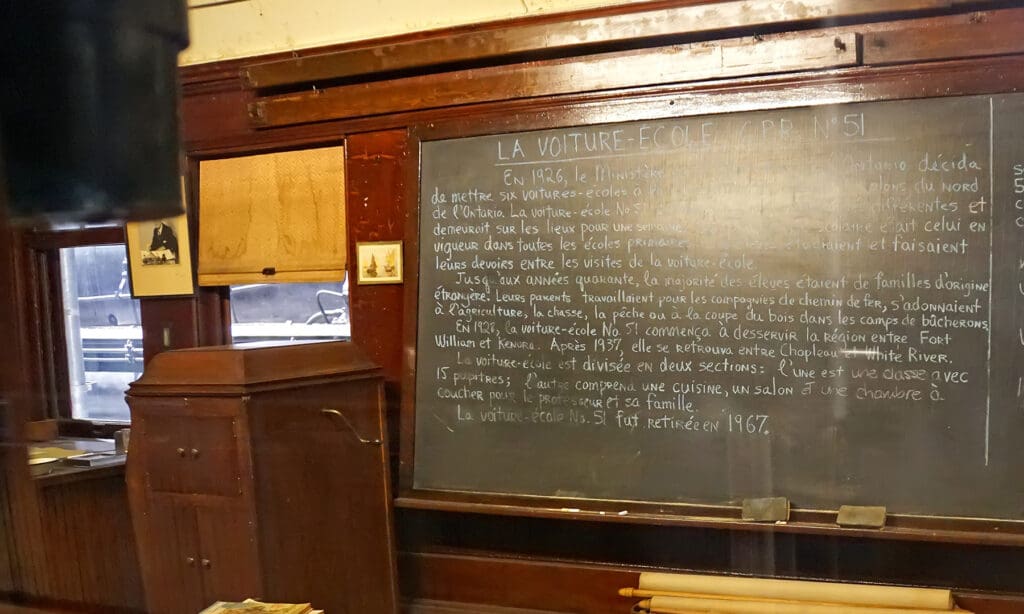 LA VOITURE-ÉCOLE C.P.R. N° 51
EN 1926, le Ministère Ontario décida
de mettre six voitures-écoles à du NORD
de l'Ontario. La voiture-école No. 51 différentes et
demeurait sur les lieux pour une semaine. scolaire était celui en
vigueur dans toutes les écoles primaires et faisaient
leurs devoirs entre les visites de la voiture-école.
Jusqu'aux années quarante, la majorité des élèves étaient de familles d'origine
étrangère. Leurs parents travaillaient pour les compagnies de chemin de fer, s'adonnaient
à l'agriculture, la chasse, la pêche ou à la coupe du bois dans les camps de bûcherons.
En 1926, la voiture-école No. 51 commença à desservir la région entre Fort
William et Kenora. Après 1937, elle se retrouva entre Chapleau et White River.
La voiture-école est divisée en deux sections: l'une est une classe avec
15 pupitres; l'autre comprend une cuisine, un salon et une chambre à
coucher pour le professeur et sa famille.
La voiture-école No. 51 fut retirée en 1967.